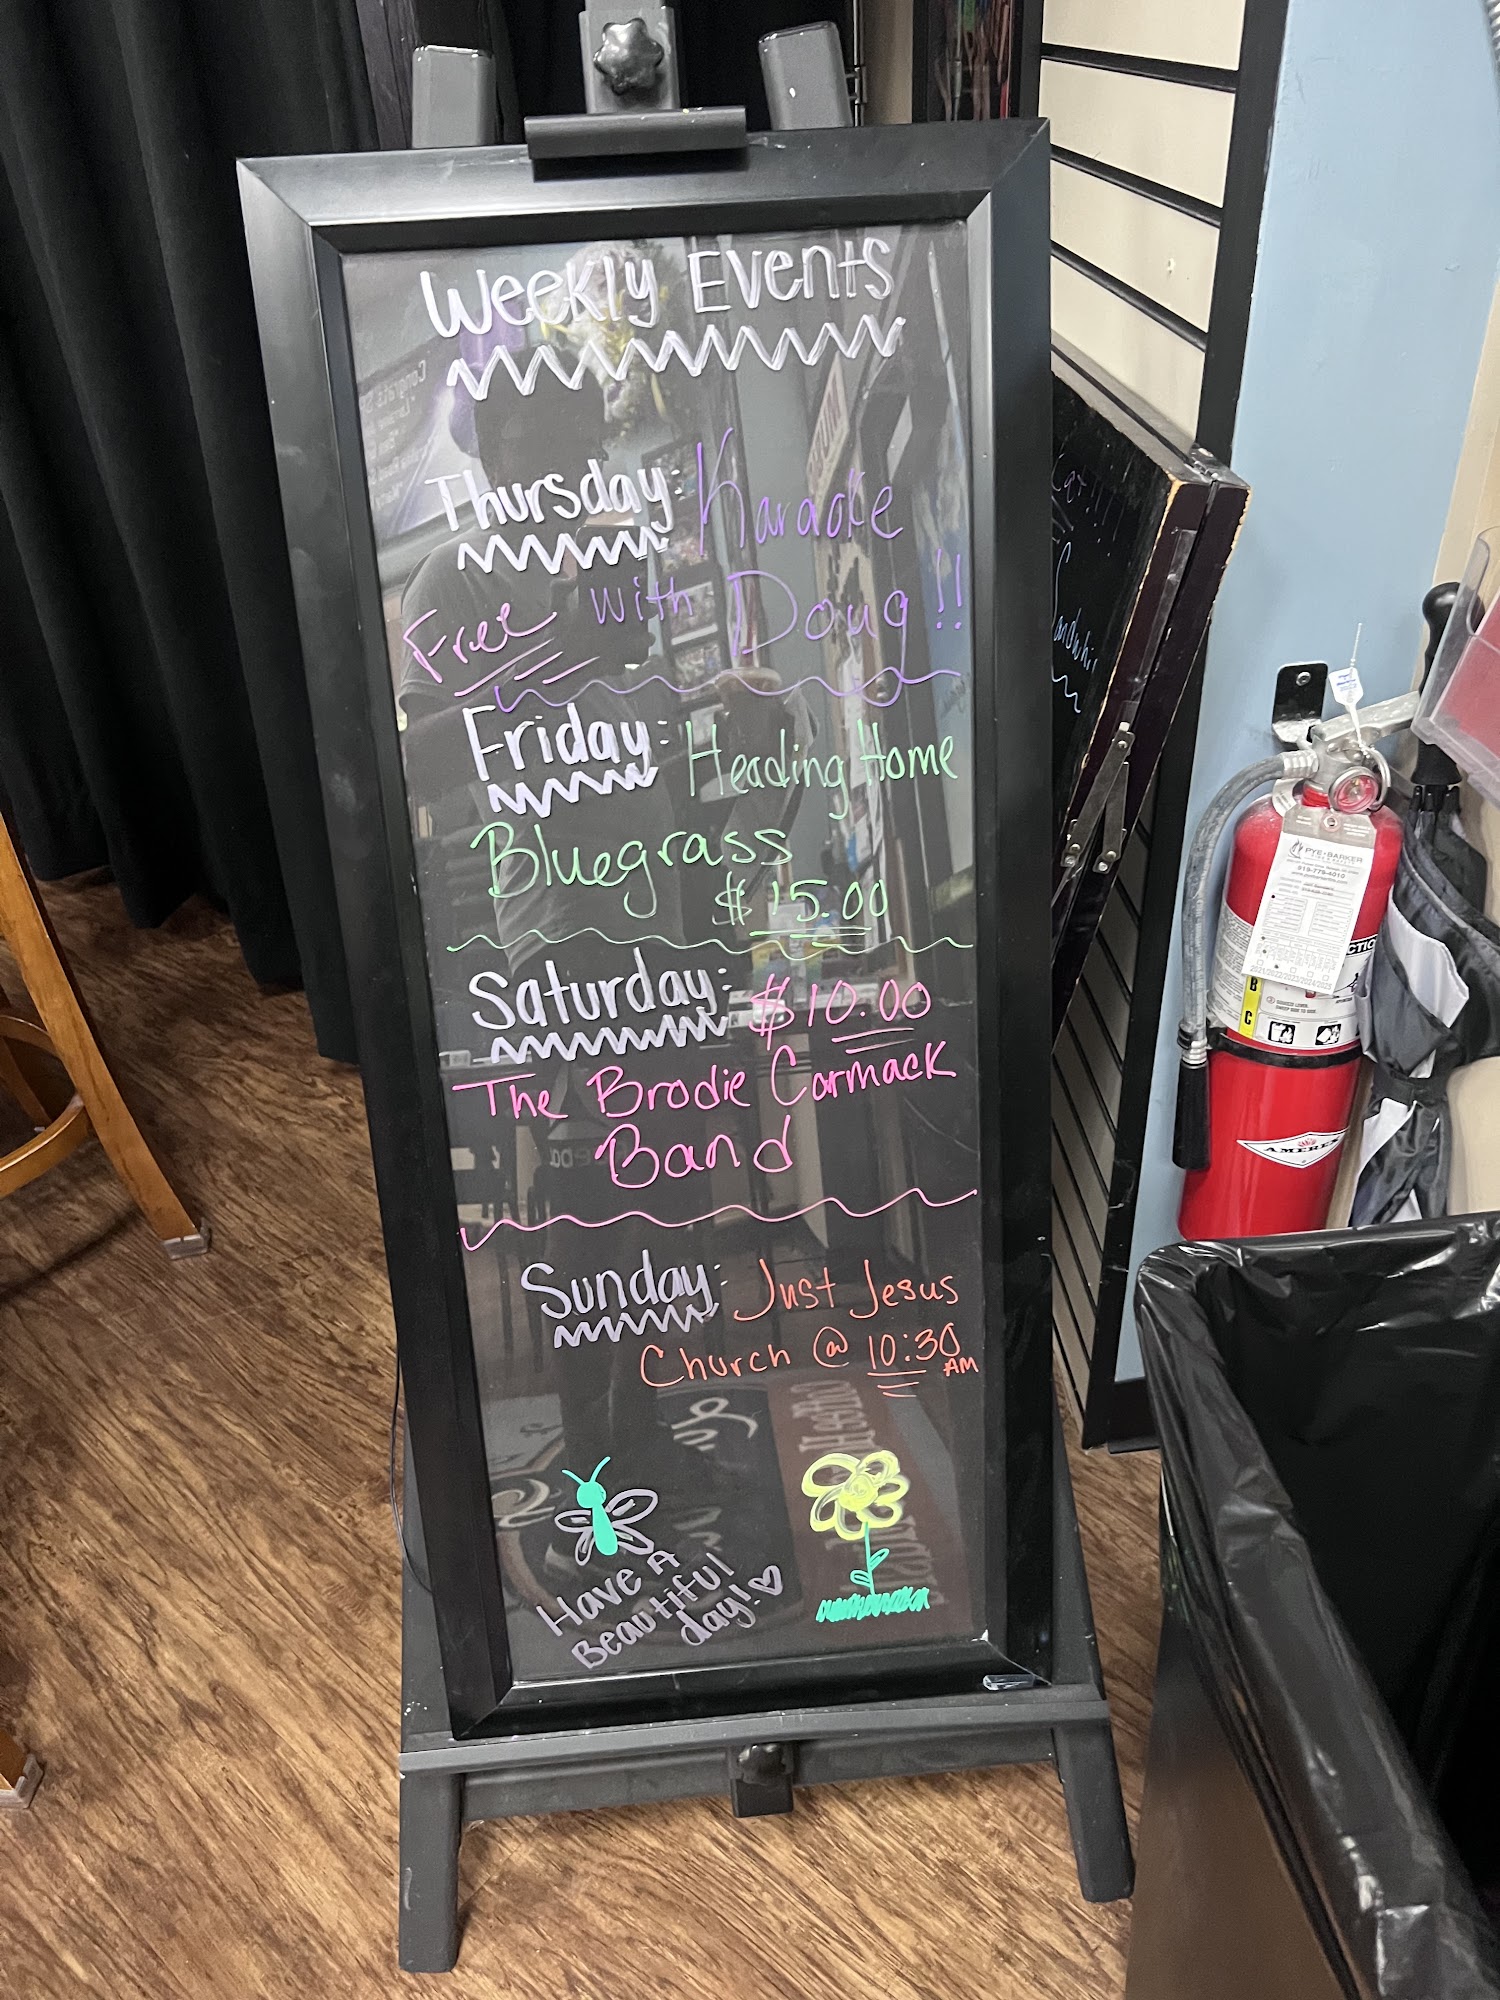 Weekly Events
Thursday: Karaoke
Free with Doug!!
Friday: Heading Home
Bluegrass
$15.00
Saturday: $10.00
The Brodie Cormack
Band
Sunday: Just Jesus
Church @ 10:30
AM
Have A
Beautiful
day!
PYE★BARKER
919-779-4010
B
C
AMEREX